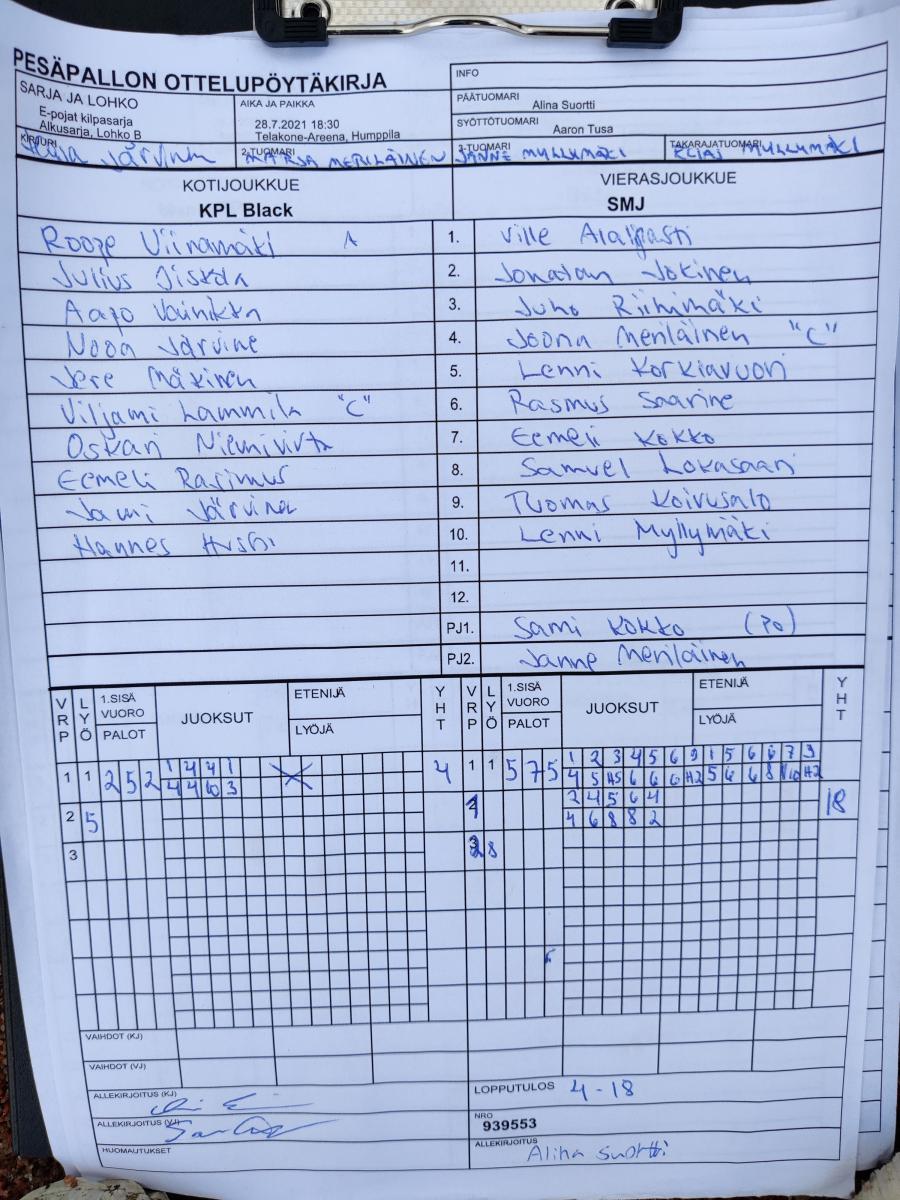 PESÄPALLON OTTELUPÖYTÄKIRJA
INFO
SARJA JA LOHKO
E-pojat kilpasarja
Alkusarja, Lohko B
AIKA JA PAIKKA
28.7.2021 18:30
Telakone-Areena, Humppila
PÄÄTUOMARI
Alina Suortti
SYÖTTÖTUOMARI
Aaron Tusa
KIRJURI
Järvinen
2-TUOMARI
MARJA MERILÄINEN
3-TUOMARI
JANNE MYLLYMÄKI
TAKARAJATUOMARI
ELIAS MYLLYMÄKI
KOTIJOUKKUE
KPL Black
VIERASJOUKKUE
SMJ
Roope Viinamäki A 1. Ville
Julius 2. Jonatan Jokinen
Aapo Vainikka 3. Juho Riihimäki
Nooa Järvine 4. Joona Meriläinen "C"
Jere Mäkinen 5. Lenni Korkiavuori
Viljami Lammila "C" 6. Rasmus Saarine
Oskari Niemivirta 7. Eemeli Kokko
Eemeli Rasimus 8. Samuel Lokasaari
Jami Järvinen 9. Tuomas Koivusalo
Hannes 10. Lenni Myllymäki
11.
12.
PJ1. Sami Kokko (PO)
PJ2. Janne Meriläinen
VRP LYÖ 1.SISÄ VUORO PALOT JUOKSUT ETENIJÄ LYÖJÄ YHT VRP LYÖ 1.SISÄ VUORO PALOT JUOKSUT ETENIJÄ LYÖJÄ YHT
1 4 4 1 1 2 3 4 5 6 9 1 5 6 6 7 9
1 1 2 5 2 4 4 10 3 4 1 1 5 7 5 4 5 H5 6 6 6 H2 5 6 6 8 10 H2
2 4 5 6 4
2 5 4 6 8 8 2 18
3 8
VAIHDOT (KJ)
VAIHDOT (VJ)
ALLEKIRJOITUS (KJ)
LOPPUTULOS 4-18
ALLEKIRJOITUS (VJ)
NRO
939553
HUOMAUTUKSET
ALLEKIRJOITUS
Alina Suortti